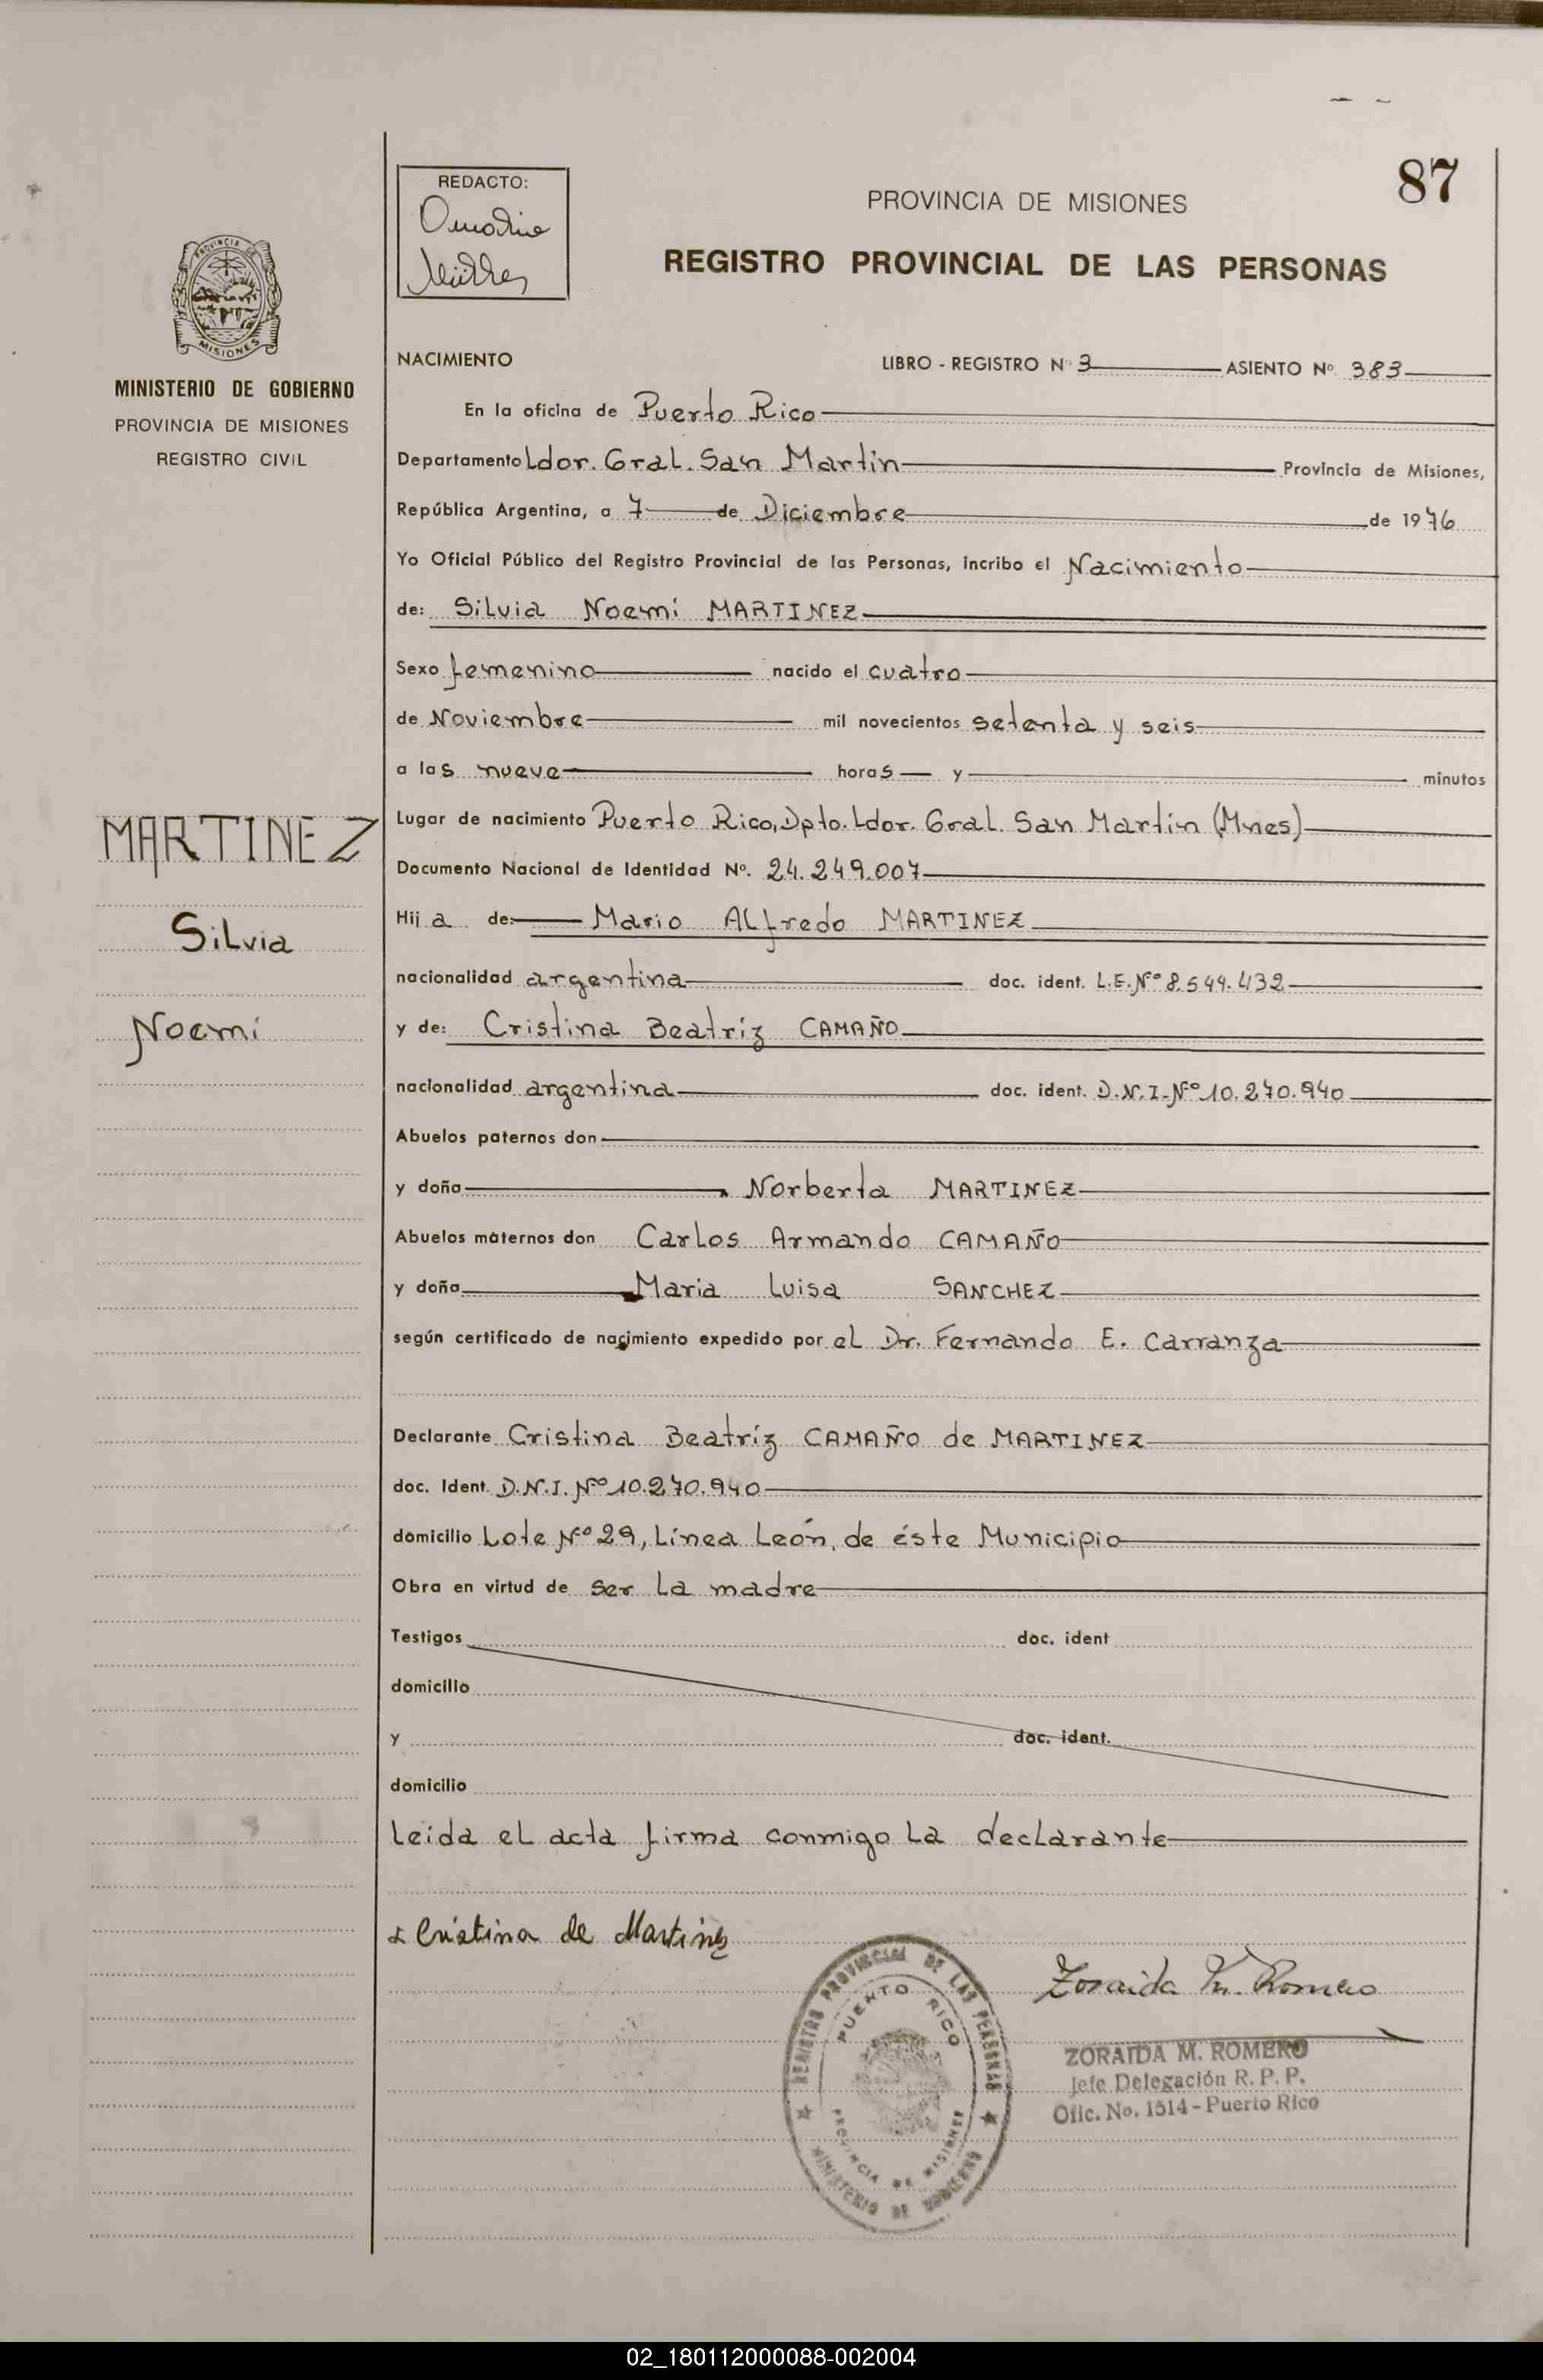 87
REDACTO:
PROVINCIA DE MISIONES
REGISTRO PROVINCIAL DE LAS PERSONAS
PROVINCIA DE
MISIONES
MINISTERIO DE GOBIERNO
PROVINCIA DE MISIONES
REGISTRO CIVIL
NACIMIENTO LIBRO - REGISTRO Nº 3 ASIENTO Nº 383
En la oficina de Puerto Rico
Departamento Ldor. Gral. San Martin Provincia de Misiones,
República Argentina, a 7 de Diciembre de 1976
Yo Oficial Público del Registro Provincial de las Personas, incribo el Nacimiento
de: Silvia Noemi MARTINEZ
Sexo femenino nacido el cuatro
de Noviembre mil novecientos setenta y seis
a las nueve horas y minutos
MARTINEZ
Silvia
Noemi
Lugar de nacimiento Puerto Rico, Dpto. Ldor. Gral. San Martin (Mnes)
Documento Nacional de Identidad Nº. 24.249.007
Hija de: Mario Alfredo MARTINEZ
nacionalidad argentina doc. ident. L.E. Nº 8.544.432
y de: Cristina Beatriz CAMAÑO
nacionalidad argentina doc. ident. D.N.I. Nº 10.270.940
Abuelos paternos don
y doña Norberta MARTINEZ
Abuelos maternos don Carlos Armando CAMAÑO
y doña Maria Luisa SANCHEZ
según certificado de nacimiento expedido por el Dr. Fernando E. Carranza
Declarante Cristina Beatríz CAMAÑO de MARTINEZ
doc. Ident. D.N.I. Nº 10.270.940
domicilio Lote Nº 29, Línea León, de éste Municipio
Obra en virtud de ser la madre
Testigos doc. ident
domicilio
y doc. ident.
domicilio
Leida el acta firma conmigo la declarante
Cristina de Martinez
Zoraida M. Romero
REGISTRO PROVINCIAL DE LAS PERSONAS
PUERTO RICO
PROVINCIA DE MISIONES
MINISTERIO DE GOBIERNO
ZORAIDA M. ROMERO
Jefe Delegación R. P. P.
Ofic. No. 1514 - Puerto Rico
02_180112000088-002004